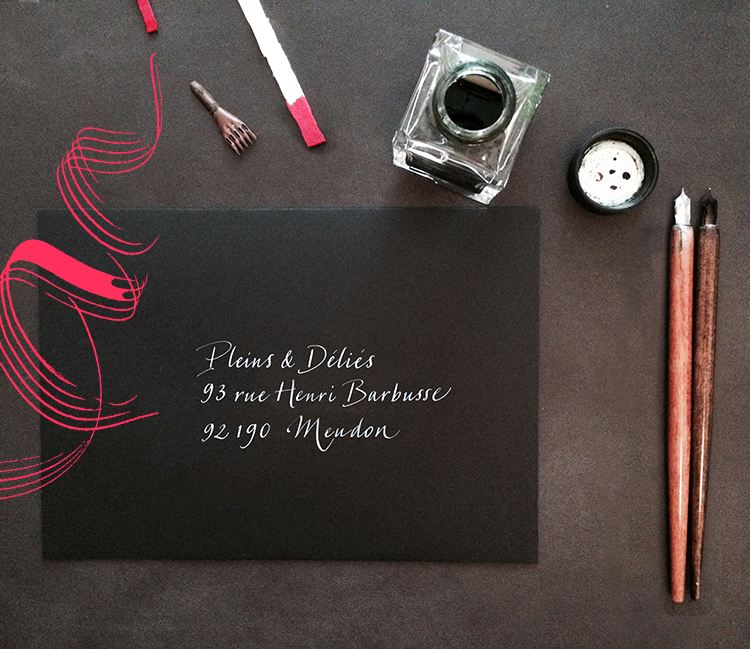 Pleins & Déliés
93 rue Henri Barbusse
92 190 Meudon